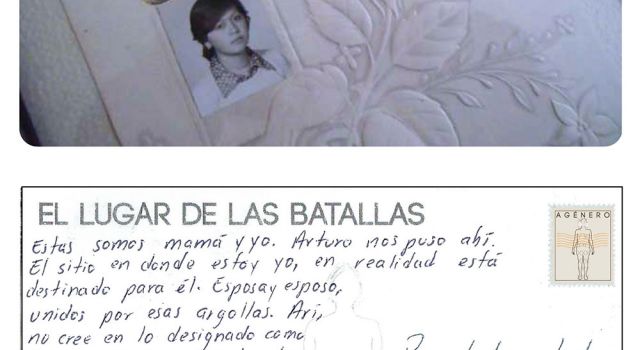 EL LUGAR DE LAS BATALLAS
AGÉNERO
Estas somos mamá y yo. Arturo nos puso ahí.
El sitio en donde estoy yo, en realidad está
destinado para él. Esposa y esposo,
unidos por esas argollas. Ari,
no cree en lo designado como